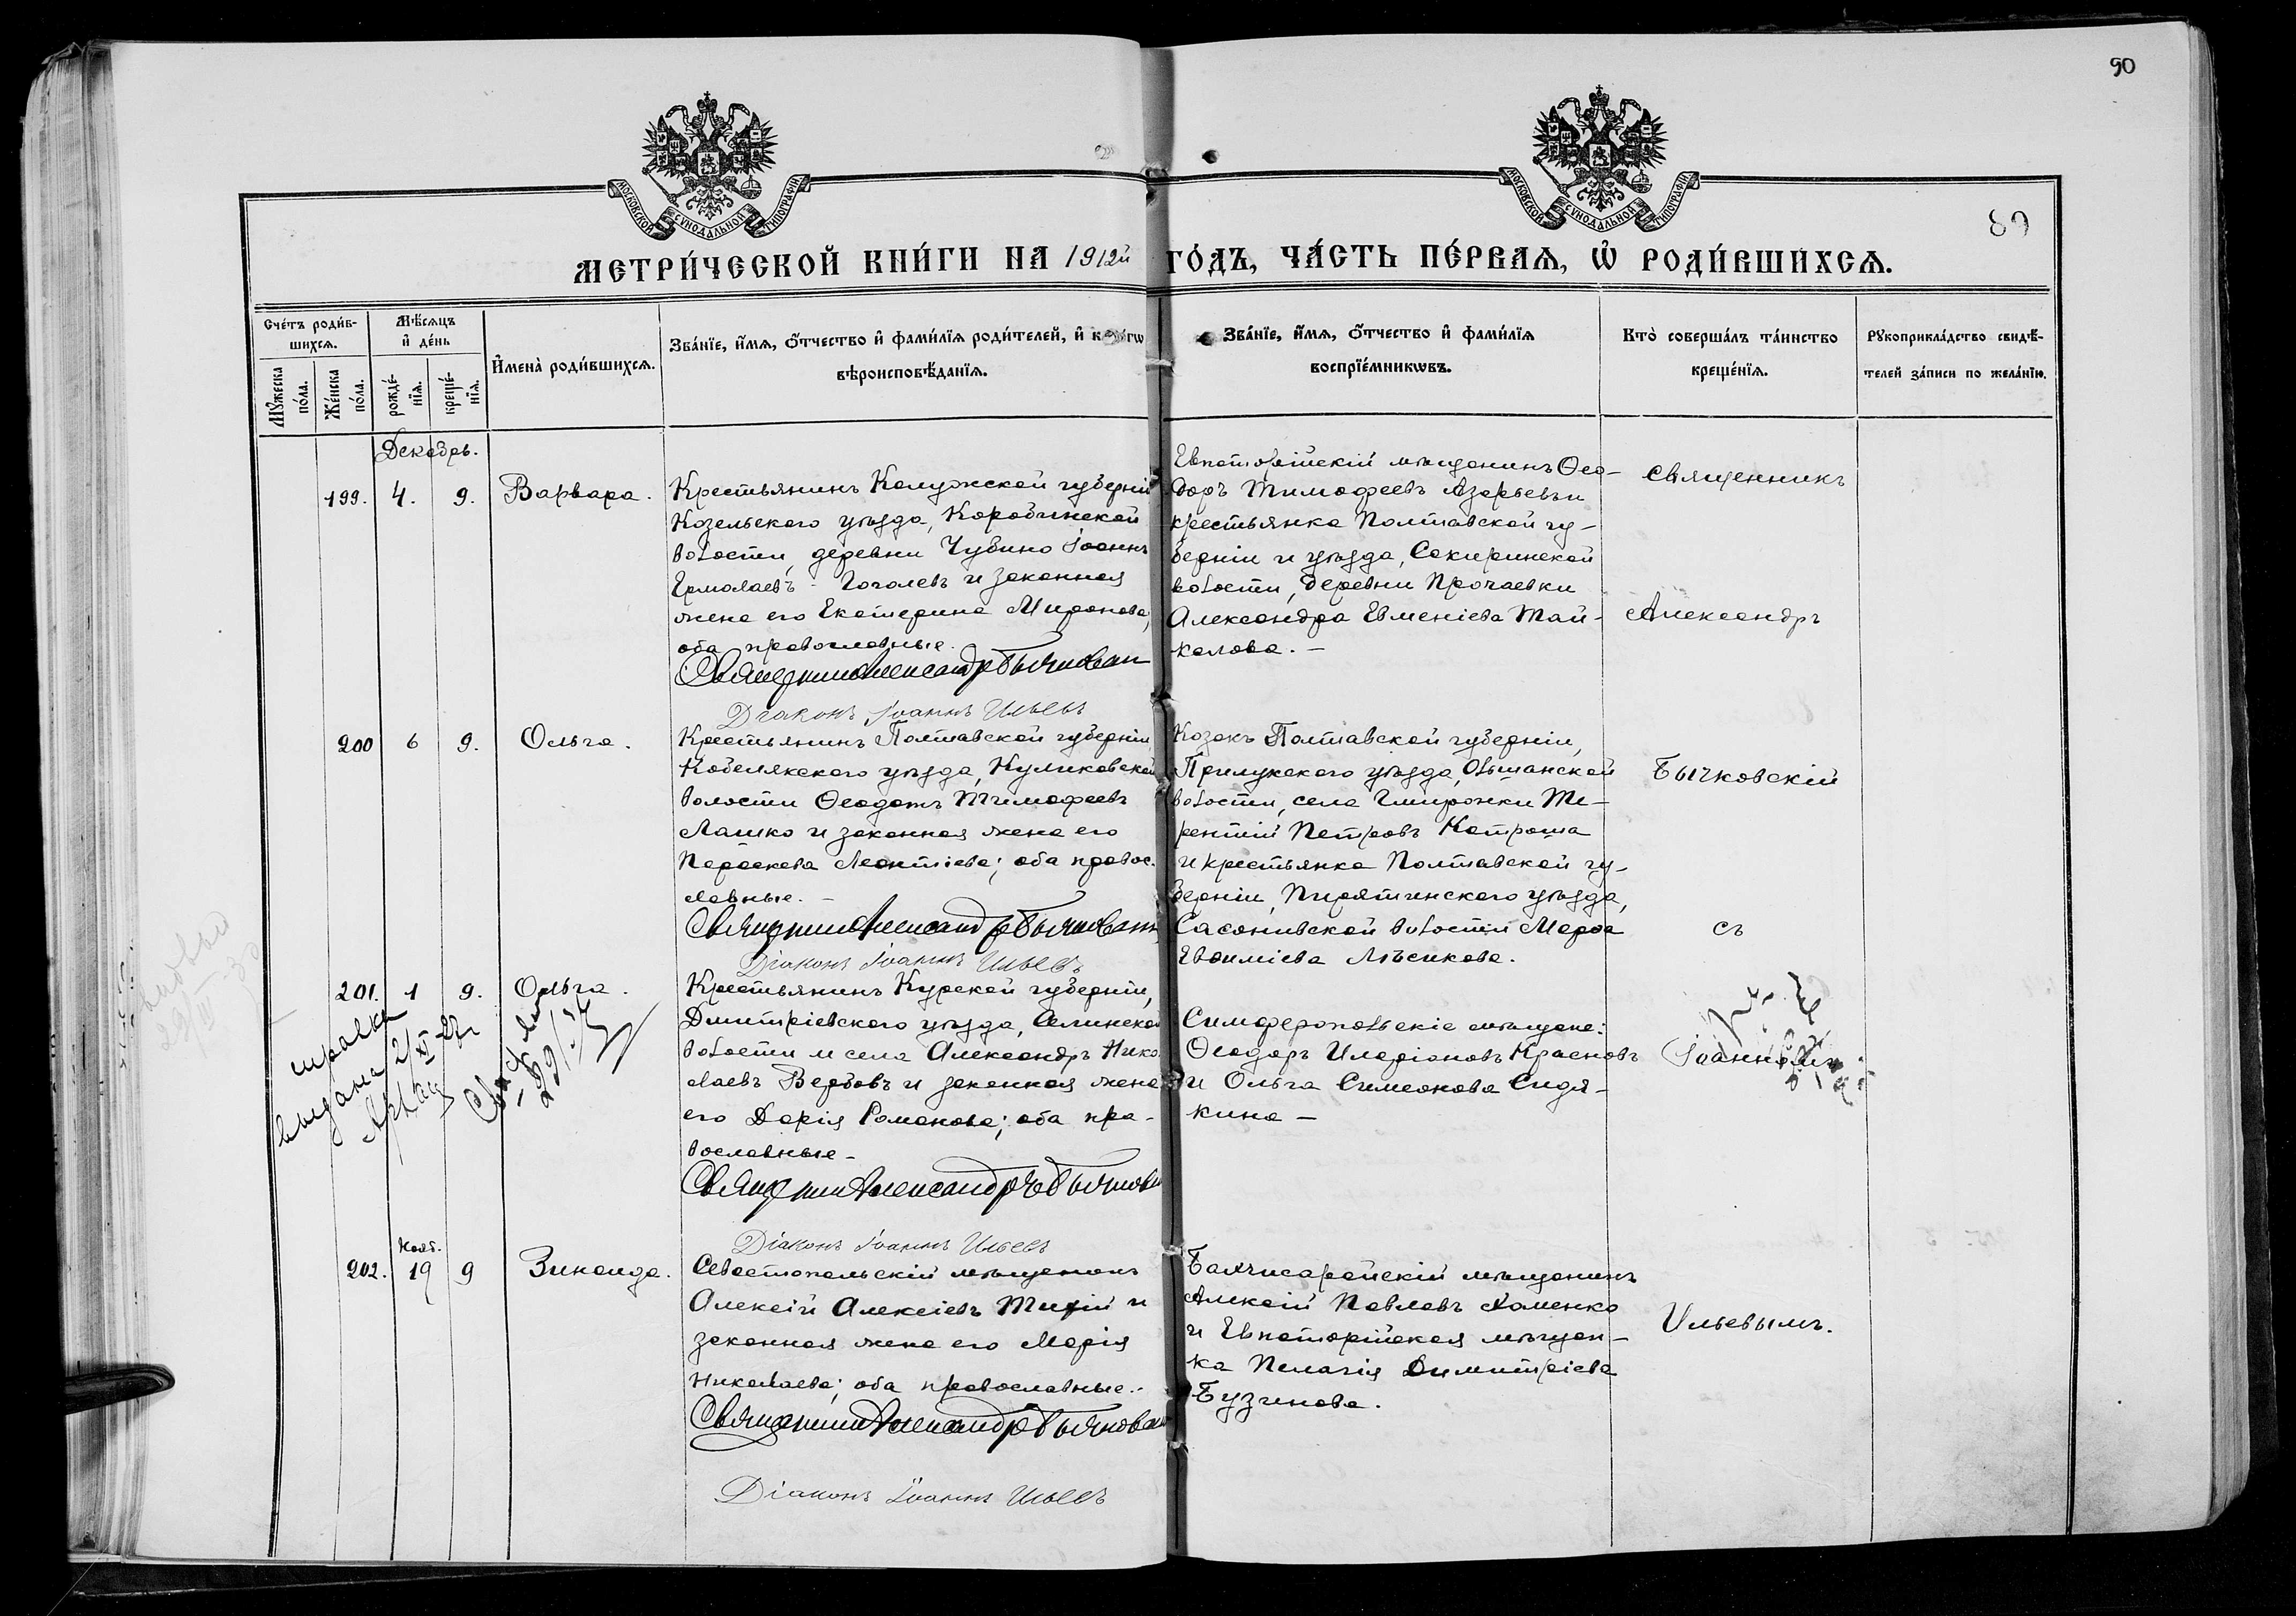 90
89
МОСКОВСКОЙ СУНОДАЛЬНОЙ ТИПОГРАФІИ.
МОСКОВСКОЙ СУНОДАЛЬНОЙ ТИПОГРАФІИ.
МЕТРИ́ЧЕСКОЙ КНИ́ГИ НА 1912й ГО́ДЪ, ЧА́СТЬ ПЕ́РВАЯ, Ѡ҆ РОДИ́ВШИХСЯ.
Сче́тъ роди́в-
шихся.
Мѣ́сяцъ
и҆ де́нь
Мꙋ́жеска по́ла.
Же́нска по́ла.
рожде́-нїѧ.
креще́-нїѧ.
И҆мена̀ роди́вшихся.
Зва́нїе, и҆́мя, ѻ҆́тчество и҆ фами́лїя роди́телей, и҆ како́гѡ
вѣроисповѣ́данїя.
Зва́нїе, и҆́мя, ѻ҆́тчество и҆ фами́лїя
воспрїе́мникѡвъ.
Кто̀ соверша́лъ та́инство
креще́нїя.
Рꙋкоприкла́дство свидѣ́-
телей за́писи по жела́нїю.
Декабрь.
199. 4. 9. Варвара.
Крестьянинъ Калужской губерніи
Козельского уѣзда, Коробинской
волости, деревни Чубино Іоаннъ
Ермолаевъ Гоголевъ и законная
жена его Екатерина Миронова,
оба православные.
Священникъ Александръ Бычковскій
Діаконъ Іоаннъ Ильевъ
Евпаторійскій мѣщанинъ Ѳео-
доръ Тимофеевъ Азарьевъ и
крестьянка Полтавской гу-
берніи и уѣзда, Сакиринской
волости, деревни Прочаевки
Александра Евменіева Тай-
калова. –
Священникъ
Александръ
200 6 9. Ольга.
Крестьянинъ Полтавской губерніи,
Кобелякского уѣзда, Куликовской
волости Ѳеодотъ Тимофеевъ
Лашко и законная жена его
Параскева Леонтіева; оба правос-
лавные. –
Священникъ Александръ Бычковскій
Діаконъ Іоаннъ Ильевъ
Козакъ Полтавской губерніи,
Прилукского уѣзда, Ольшанской
волости, села Гмирянки Те-
рентій Петровъ Катроша
и крестьянка Полтавской гу-
берніи, Пирятинского уѣзда,
Сасоновской волости Марѳа
Евѳиміева Лѣсикова.
Бычковскій
съ
201. 1 9. Ольга.
справка
выдана 2/VI 27г
Крестьянинъ Курской губерніи,
Дмитріевского уѣзда, Селинской
волости и села Александръ Нико-
лаевъ Вербовъ и законная жена
его Дарія Романова; оба пра-
вославные –
Священникъ Александръ Бычковскій
Діаконъ Іоаннъ Ильевъ
Симферопольскіе мѣщане:
Ѳеодоръ Иларіоновъ Красновъ
и Ольга Симеонова Сидя-
кина –
Іоанномъ
202. Нояб. 19 9 Зинаида.
Севастопольскій мѣщанинъ
Алексій Алексіевъ Тихій и
законная жена его Марія
Николаева; оба православные. –
Священникъ Александръ Бычковскій
Діаконъ Іоаннъ Ильевъ
Бахчисарайскій мѣщанинъ
Алексій Павловъ Хоменко
и Евпаторійская мѣщан-
ка Пелагія Димитріева
Бузинова.
Ильевымъ.